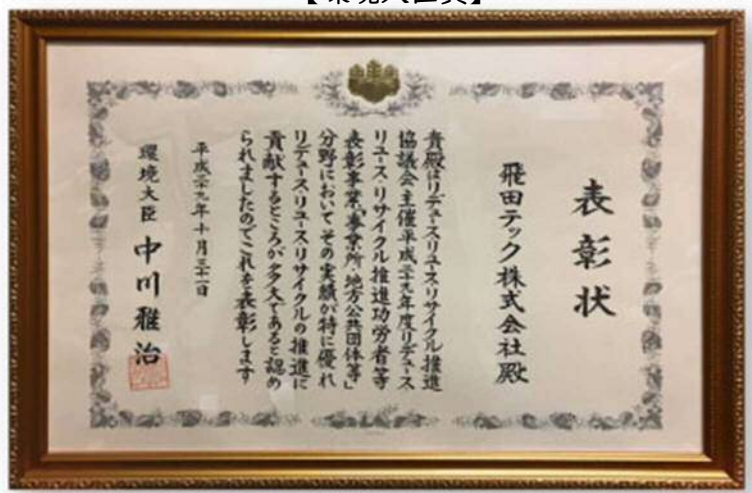 表彰状
飛田テック株式会社殿
貴殿はリデュース・リユース・リサイクル推進
協議会主催平成二十九年度リデュース・
リユース・リサイクル推進功労者等
表彰事業「事業所・地方公共団体等」
分野においてその実績が特に優れ
リデュース・リユース・リサイクルの推進に
貢献するところが多大であると認め
られましたのでこれを表彰します
平成二十九年十月三十一日
環境大臣 中川雅治